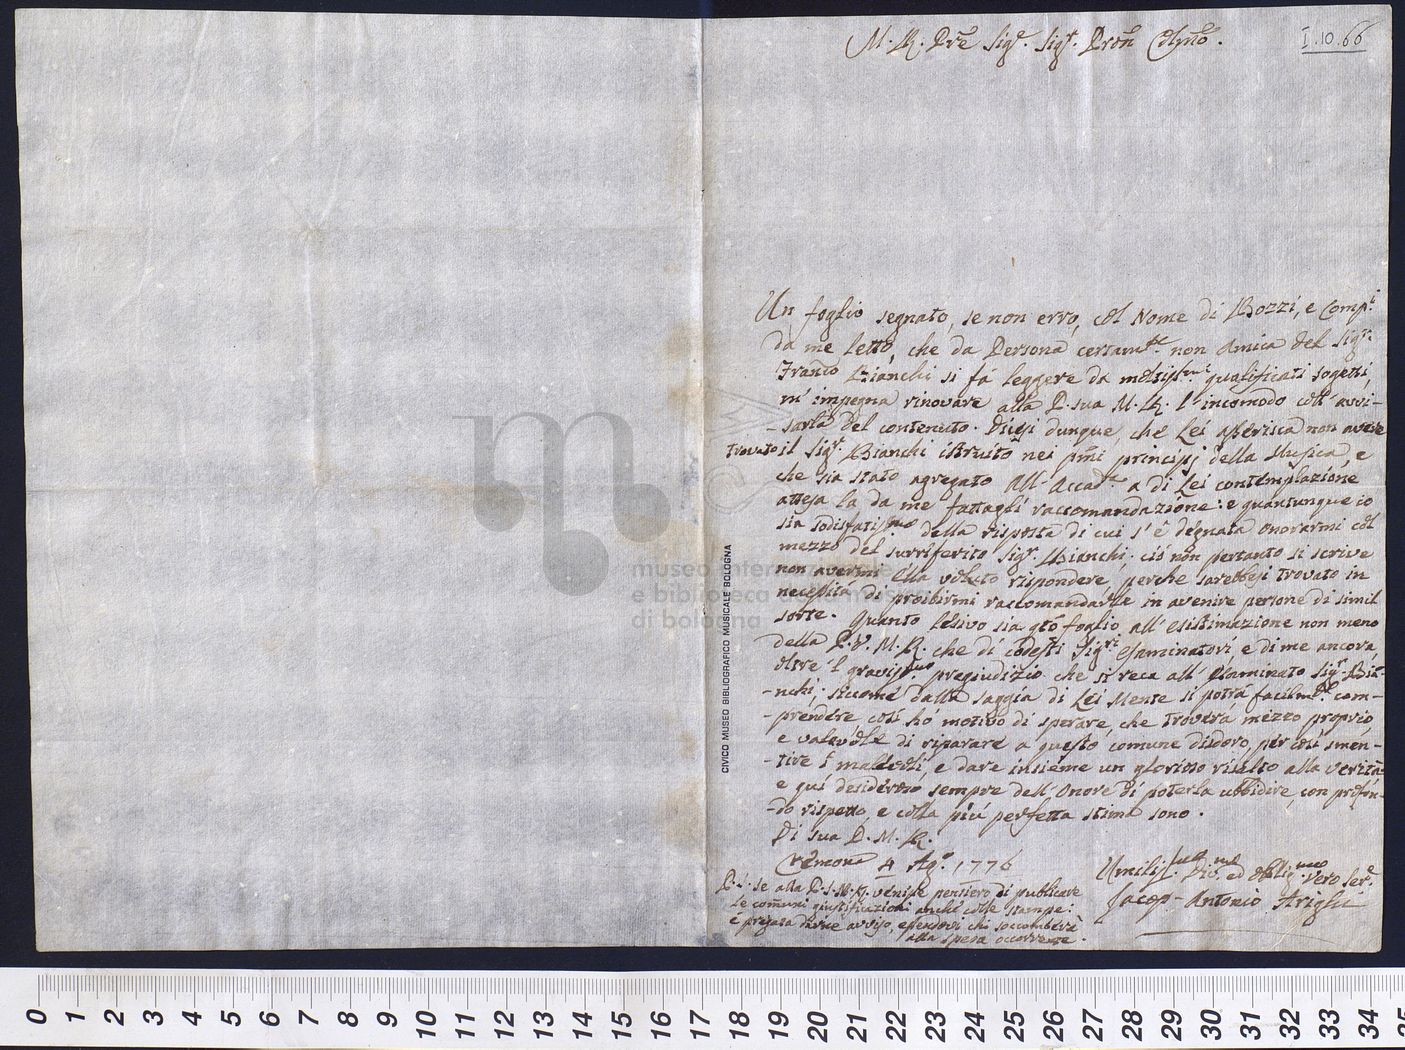 M. R. Pre Sigr. Sigr. Pron Colmo.
I.10.66
Un foglio segnato, se non erro, col Nome di Bozzi, e Compi
da me letto, che da Persona certamte. non Amica del Sigr.
Franco Bianchi si fá leggere da moltissmi qualificati sogetti,
m'impegna rinovare alla P. sua M. R. l'incomodo coll'avvi-
-sarla del contenuto. Dicesi dunque che Lei asserisca non avere
trovato il Sigr. Bianchi istruito nei pmi principj della Musica, e
che sia stato agregato all'Accada. a di Lei contemplazione
attesa la da me fattagli raccomandazione: e quantunque io
sia sodisfatissmo della risposta di cui s'é degnata onorarmi col
mezzo del surriferito Sigr. Bianchi, ció non pertanto si scrive
non avermi Ella voluto rispondere, perche sarebbesi trovato in
necessitá di proibirmi raccomandarle in avenire persone di simil
sorte. Quanto lesivo sia qto foglio all'esistimazione non meno
della P. V. M. R. che di codesti Sigri Esaminatori e di me ancora,
oltre il gravissmo pregiudizio che si reca all'Esaminato Sigr. Bia-
-nchi, siccome dalla saggia di Lei Mente si potrá facilmte. com-
-prendere, cosí hó motivo di sperare, che troverá mezzo proprio,
e valevole di riparare a questo comune disdoro, per cosí smen-
-tire i maledoli, e dare insieme un glorioso risalto alla veritá:
e quí desideroso sempre dell'Onore di poterla ubbidire, con profon-
-do rispetto, e colla piú perfetta stima sono.
Di sua P. M. R.
Cremona 4 Ago. 1776
Umiliss.mo Div.mo ed Obblig.mo vero Sere.
Jacop-Antonio Arighi
P. S. Se alla P. S. M. R. venisse pensiero di publicare
le comuni giustificazioni anche colle stampe:
é pregata darne avviso, essendovi chi soccomberá
alla spesa occorrente.
CIVICO MUSEO BIBLIOGRAFICO MUSICALE BOLOGNA
museo internazionale
e biblioteca della musica
di bologna
0 1 2 3 4 5 6 7 8 9 10 11 12 13 14 15 16 17 18 19 20 21 22 23 24 25 26 27 28 29 30 31 32 33 34 35